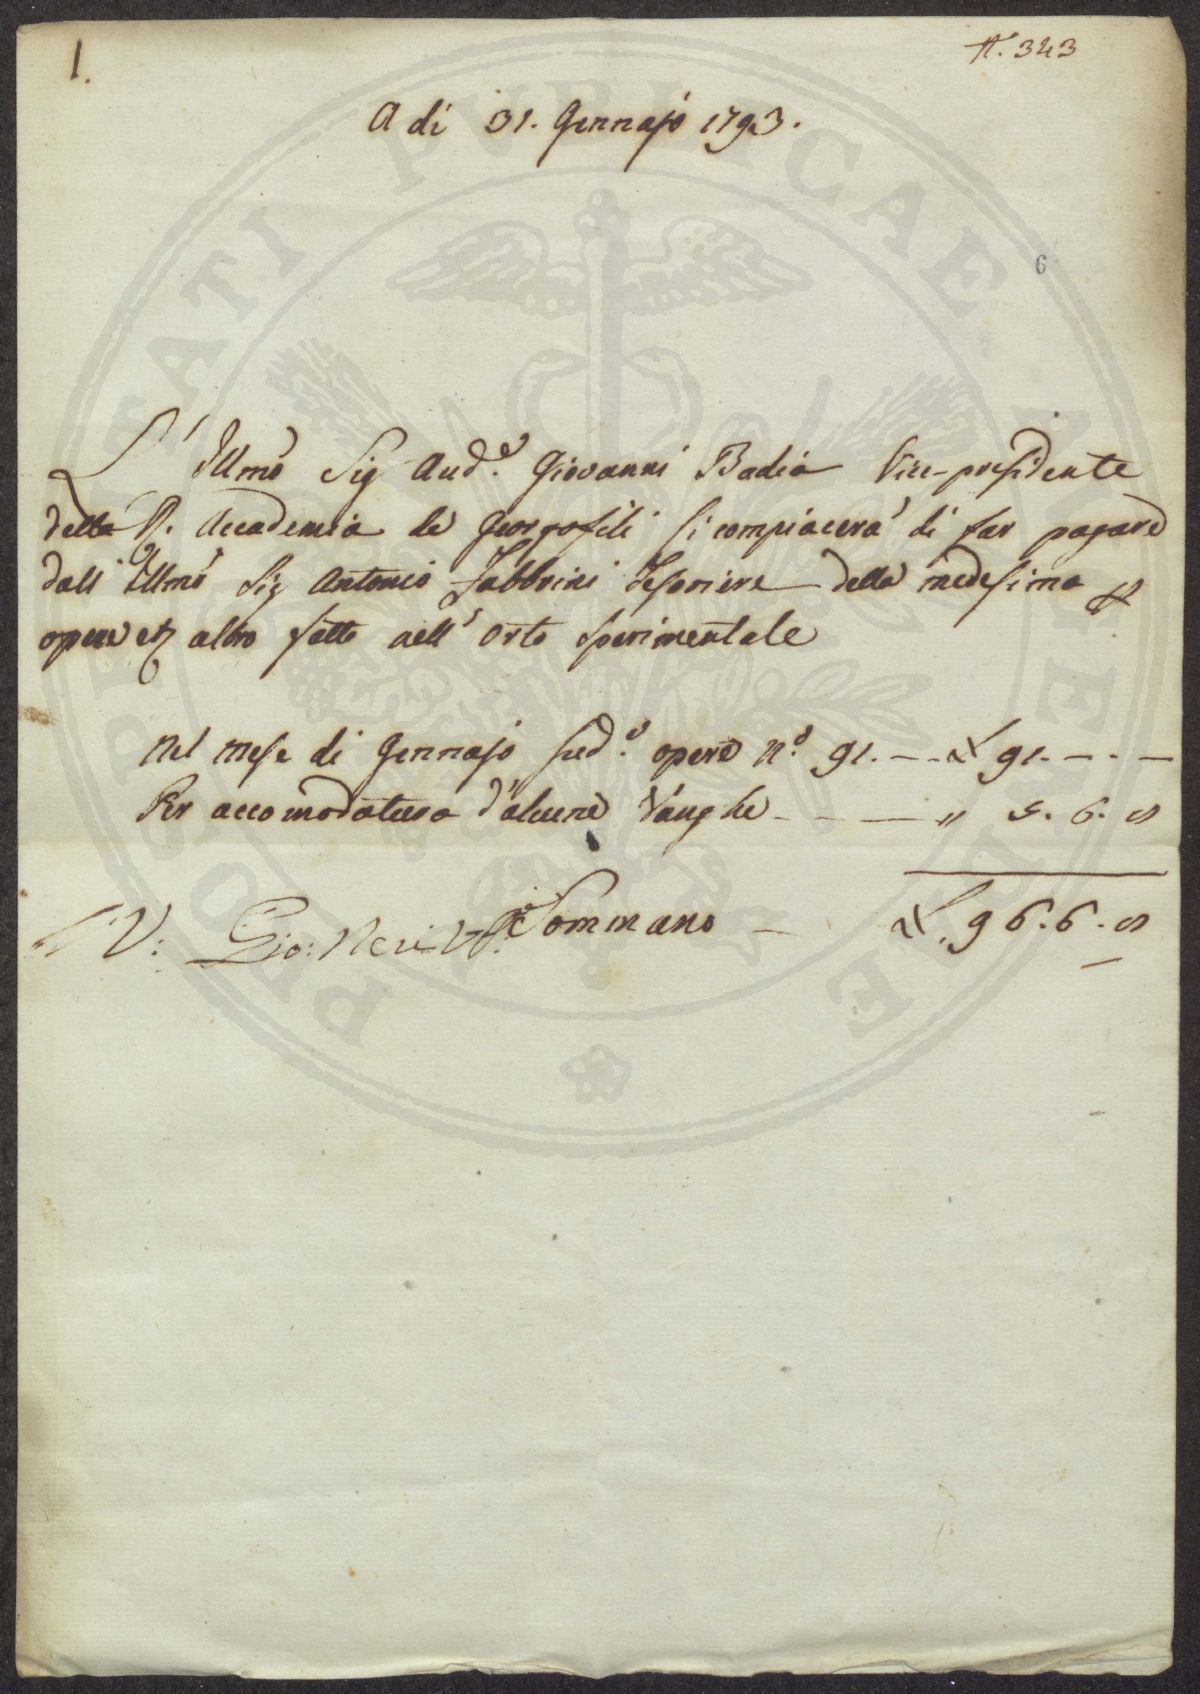 1.
N. 343
A dì 31. Gennajo 1793.
6
L' Illmo Sig Aud.e Giovanni Badia Vice-presidente
della R. Accademia de Georgofili si compiacerà di far pagare
dall' Illmo Sig Antonio Fabbrini Tesoriere della medesima p
opere et altro fatto nell' orto sperimentale
Nel mese di Gennajo sud.o opere N.o 91. — £ 91. — . —
Per accomodatura d'alcune Vanghe — — — " 5. 6. 8
Sommano — £. 96. 6. 8
V: Gio: Neri
PUBLICAE